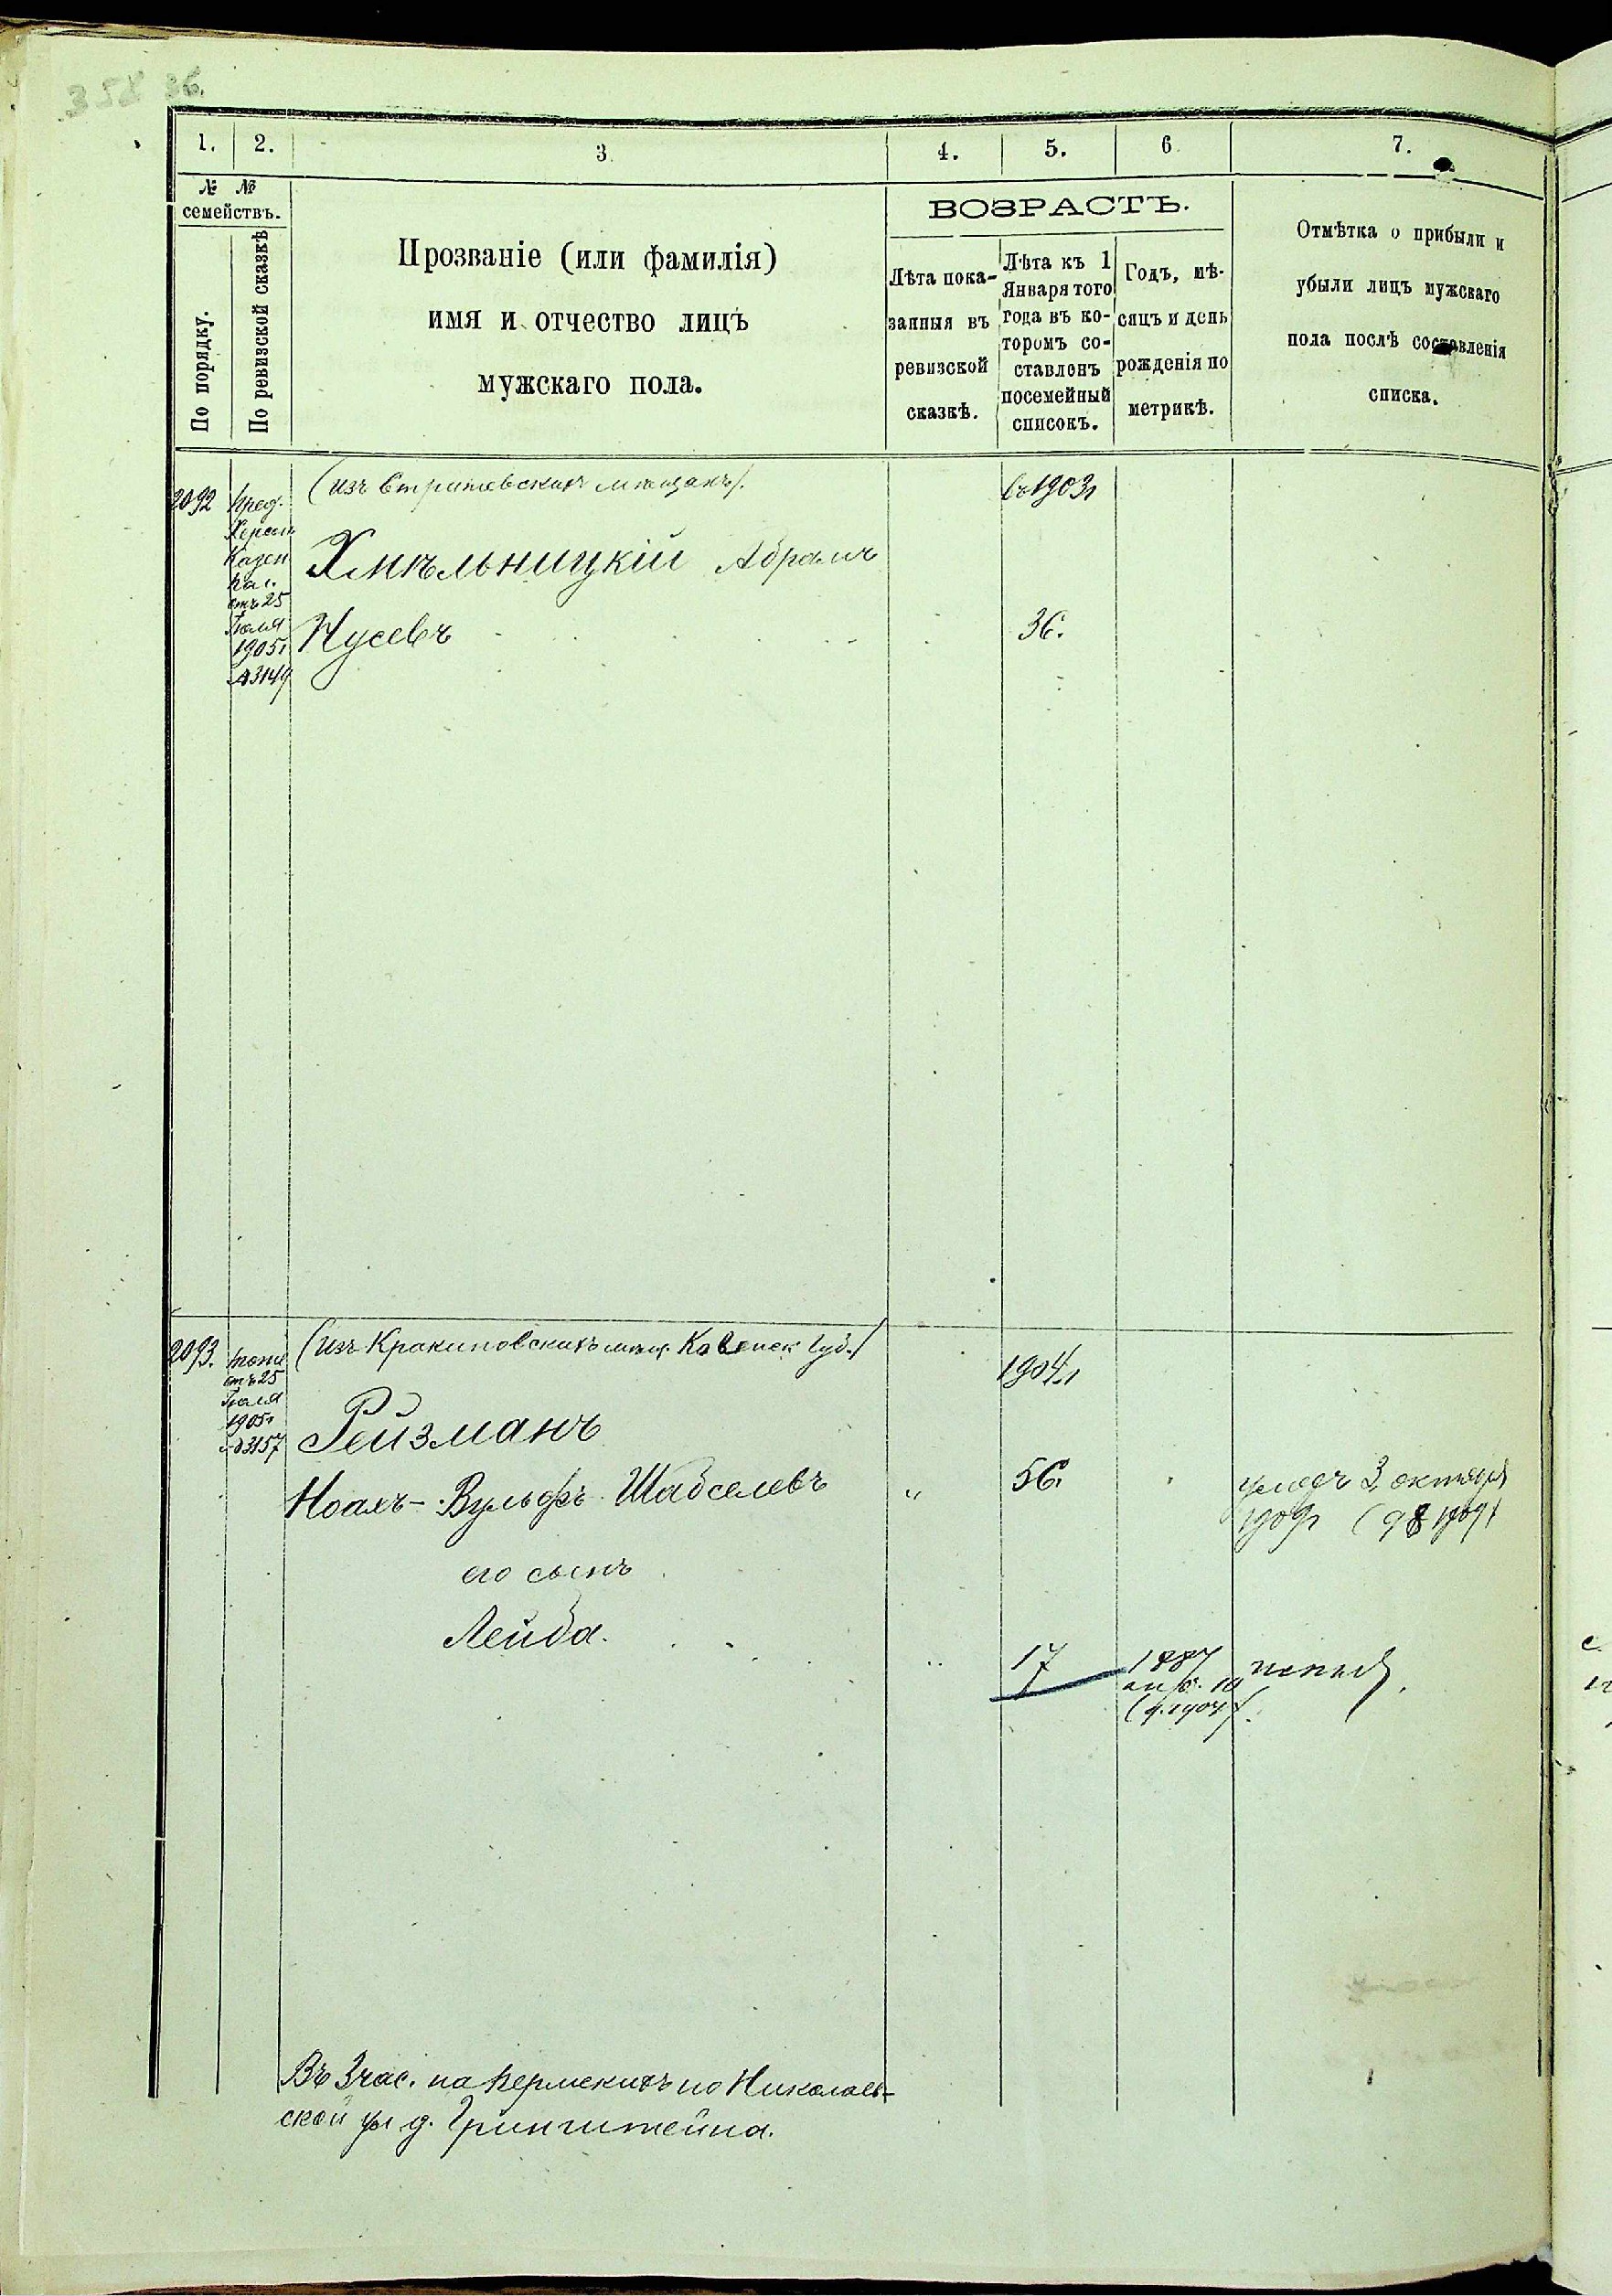 358 36.
1. 2. 3. 4. 5. 6. 7.
№ №
семействъ.
По порядку.
По ревизской сказкѣ
Прозваніе (или фамилія)
имя и отчество лицъ
мужскаго пола.
ВОЗРАСТЪ.
Лѣта пока-
занныя въ
ревизской
сказкѣ.
Лѣта къ 1
Января того
года въ ко-
торомъ со-
ставленъ
посемейный
списокъ.
Годъ, мѣ-
сяцъ и день
рожденія по
метрикѣ.
Отмѣтка о прибыли и
убыли лицъ мужскаго
пола послѣ составленія
списка.
2092
Пред.
Херсон
Казен
Пал.
отъ 25
Іюля
1905г
№3149
(изъ мѣщанъ).
Хмѣльницкій Абрамъ
Нусевъ
1903г
36.
2093.
тоже
отъ 25
Іюля
1905г
№3157
(изъ Кракиновскихъ мѣщ. Ковенск. губ.)
Рейзманъ
Ноахъ-Вульфъ Шабселевъ
его сынъ
Лейба.
1904г
56.
умеръ 3 октября
1909г (98 1909)
17
1887
(ч. 1904)
Въ 3 час. на Пермскихъ по Николаев-
ской ул д. Гринштейна.